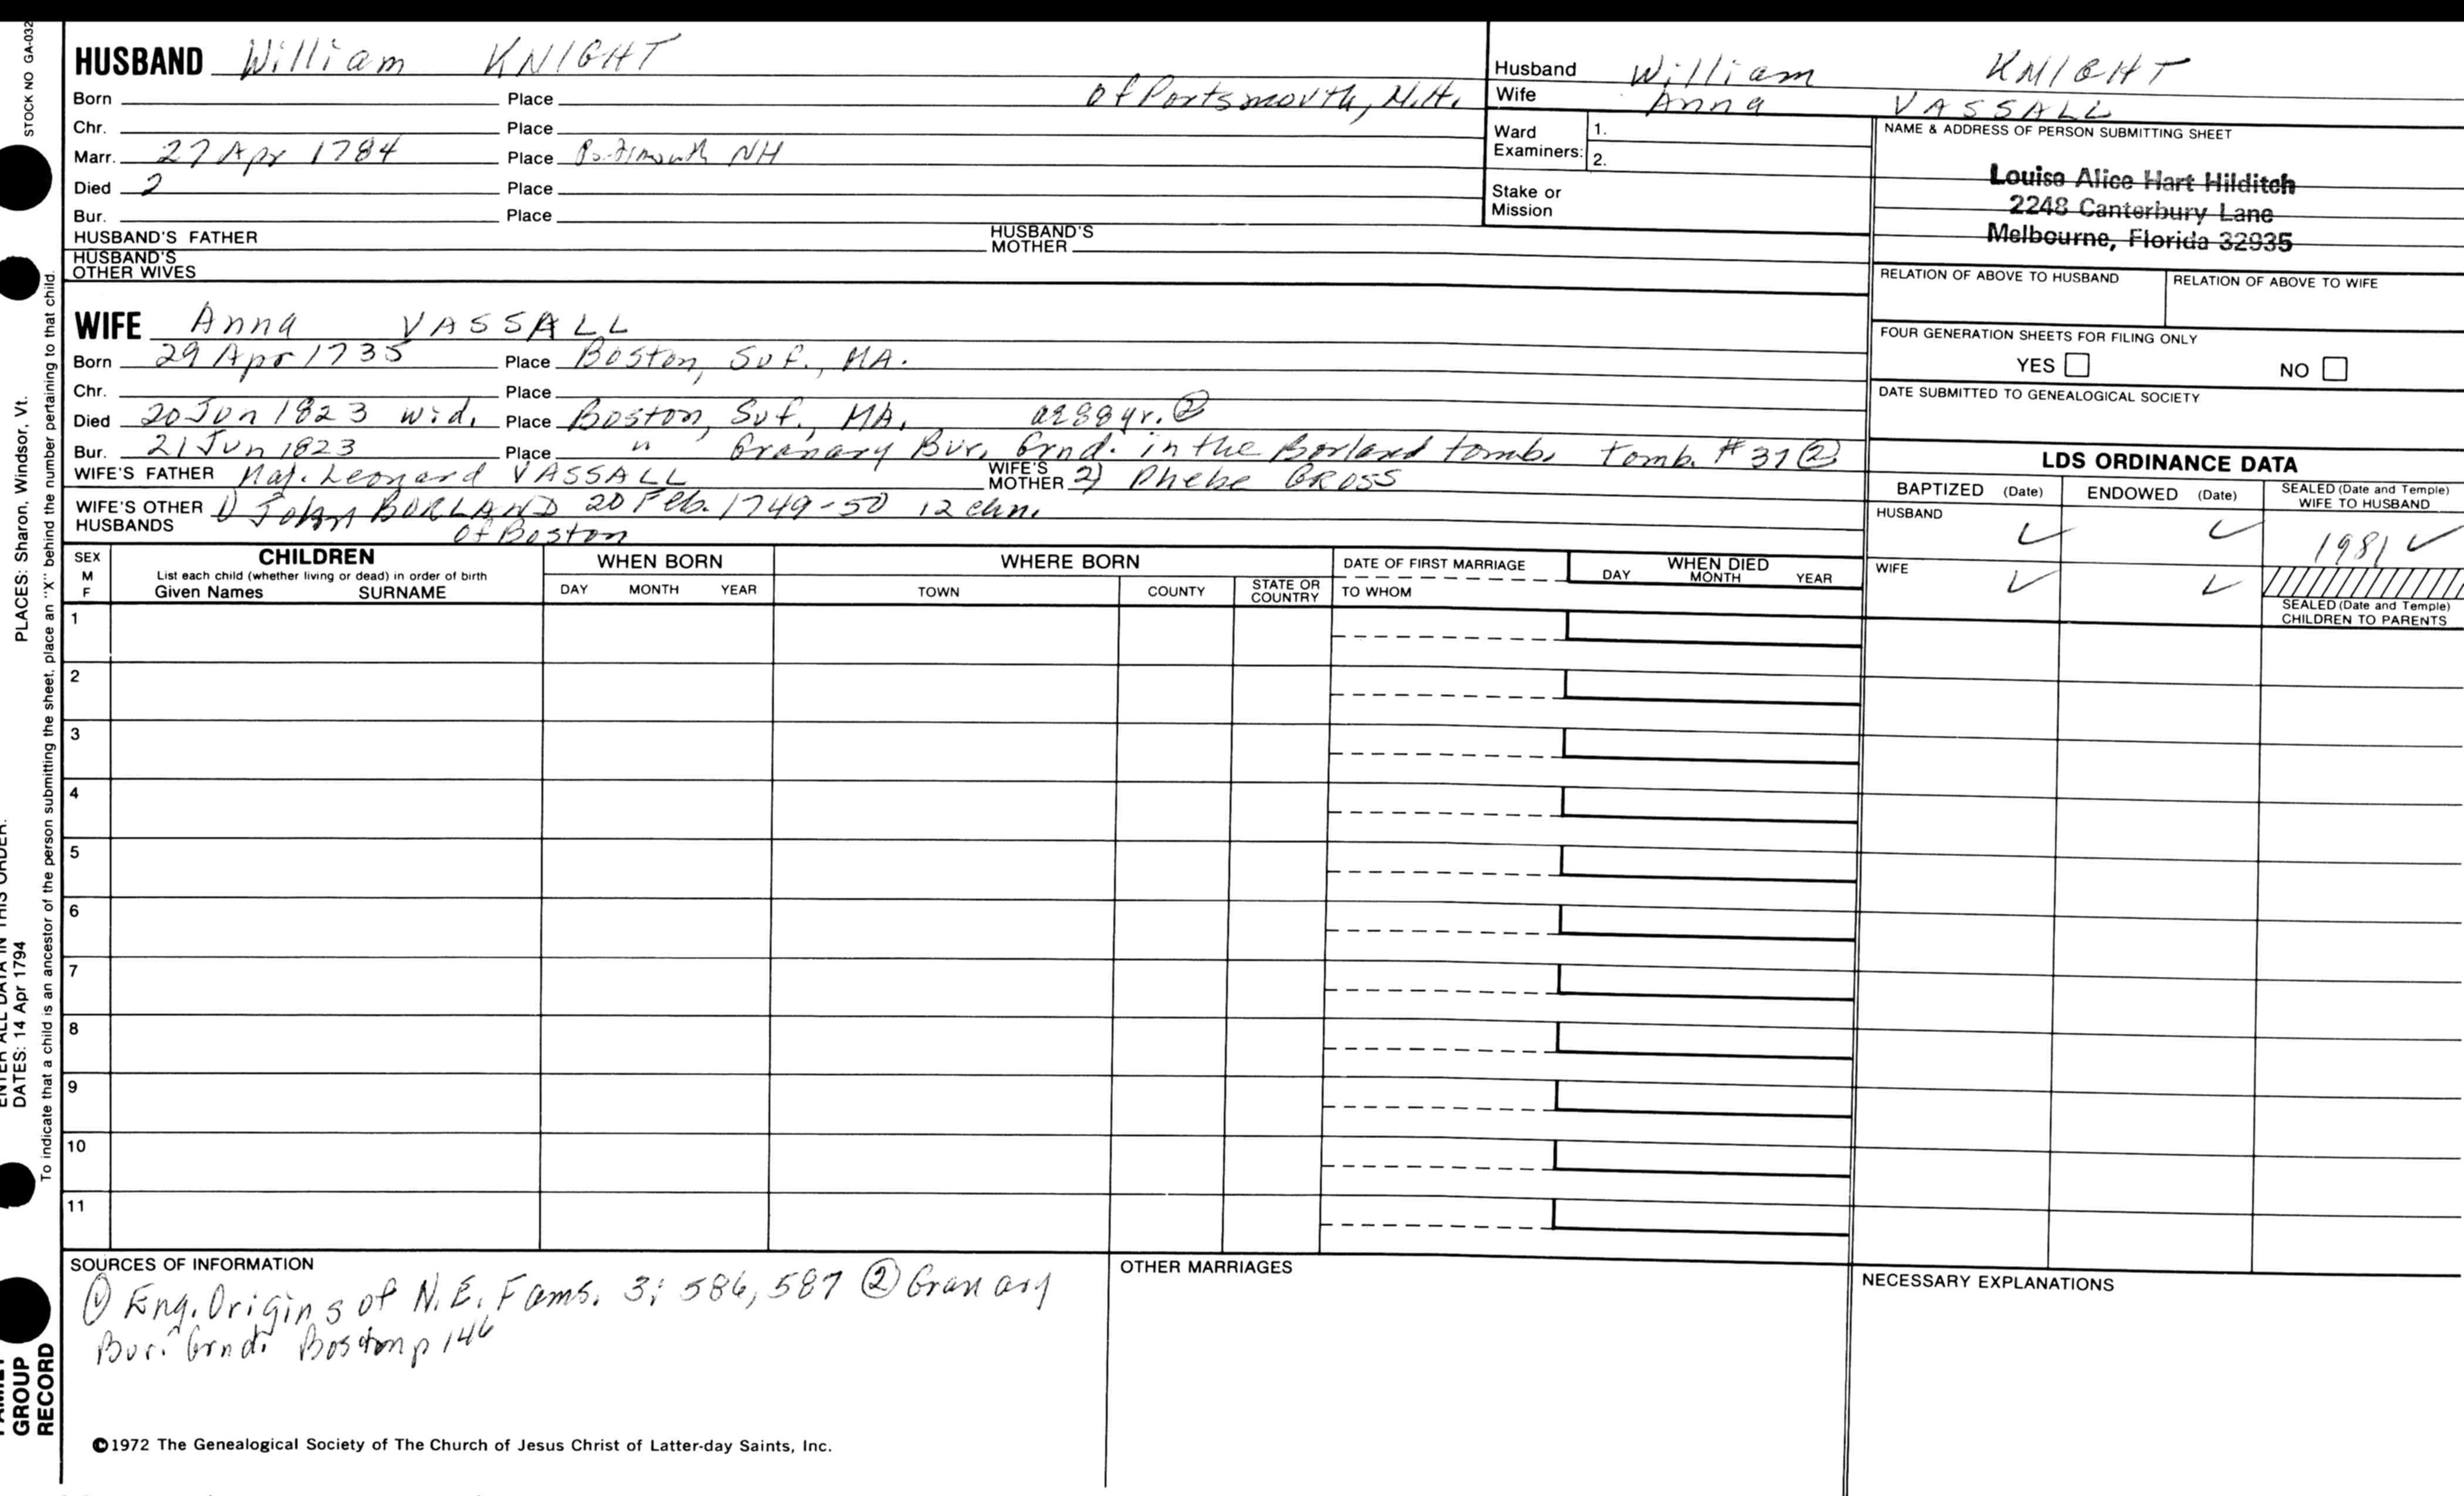 STOCK NO GA-032
PLACES: Sharon, Windsor, Vt.
ENTER ALL DATA IN THIS ORDER:
DATES: 14 Apr 1794
To indicate that a child is an ancestor of the person submitting the sheet, place an "X" behind the number pertaining to that child.
FAMILY
GROUP
RECORD
HUSBAND William KNIGHT
Born Place of Portsmouth, N.H.
Chr. Place
Marr. 27 Apr 1784 Place Portsmouth NH
Died Place
Bur. Place
HUSBAND'S FATHER HUSBAND'S MOTHER
HUSBAND'S OTHER WIVES
WIFE Anna VASSALL
Born 29 Apr 1735 Place Boston, Suf., MA.
Chr. Place
Died 20 Jun 1823 wid. Place Boston, Suf., MA. 88yr. ②
Bur. 21 Jun 1823 Place " Granary Bur. Grnd. in the Borland tomb. Tomb. #31 ②
WIFE'S FATHER Maj. Leonard VASSALL WIFE'S MOTHER 2) Phebe GROSS
WIFE'S OTHER HUSBANDS 1) John BORLAND 20 Feb. 1749-50 12 chn.
of Boston
Husband William KNIGHT
Wife Anna VASSALL
Ward Examiners: 1.
2.
Stake or Mission
NAME & ADDRESS OF PERSON SUBMITTING SHEET
Louise Alice Hart Hilditch
2248 Canterbury Lane
Melbourne, Florida 32935
RELATION OF ABOVE TO HUSBAND RELATION OF ABOVE TO WIFE
FOUR GENERATION SHEETS FOR FILING ONLY
YES NO
DATE SUBMITTED TO GENEALOGICAL SOCIETY
LDS ORDINANCE DATA
BAPTIZED (Date) ENDOWED (Date) SEALED (Date and Temple) WIFE TO HUSBAND
HUSBAND ✓ ✓ 1981 ✓
WIFE ✓ ✓
SEALED (Date and Temple) CHILDREN TO PARENTS
SEX M F
CHILDREN
List each child (whether living or dead) in order of birth
Given Names SURNAME
WHEN BORN
DAY MONTH YEAR
WHERE BORN
TOWN COUNTY STATE OR COUNTRY
DATE OF FIRST MARRIAGE
TO WHOM
WHEN DIED
DAY MONTH YEAR
1
2
3
4
5
6
7
8
9
10
11
SOURCES OF INFORMATION
① Eng. Origins of N.E. Fams. 3: 586, 587 ② Granary
Bur. Grnd. Boston p 146
OTHER MARRIAGES
NECESSARY EXPLANATIONS
©1972 The Genealogical Society of The Church of Jesus Christ of Latter-day Saints, Inc.